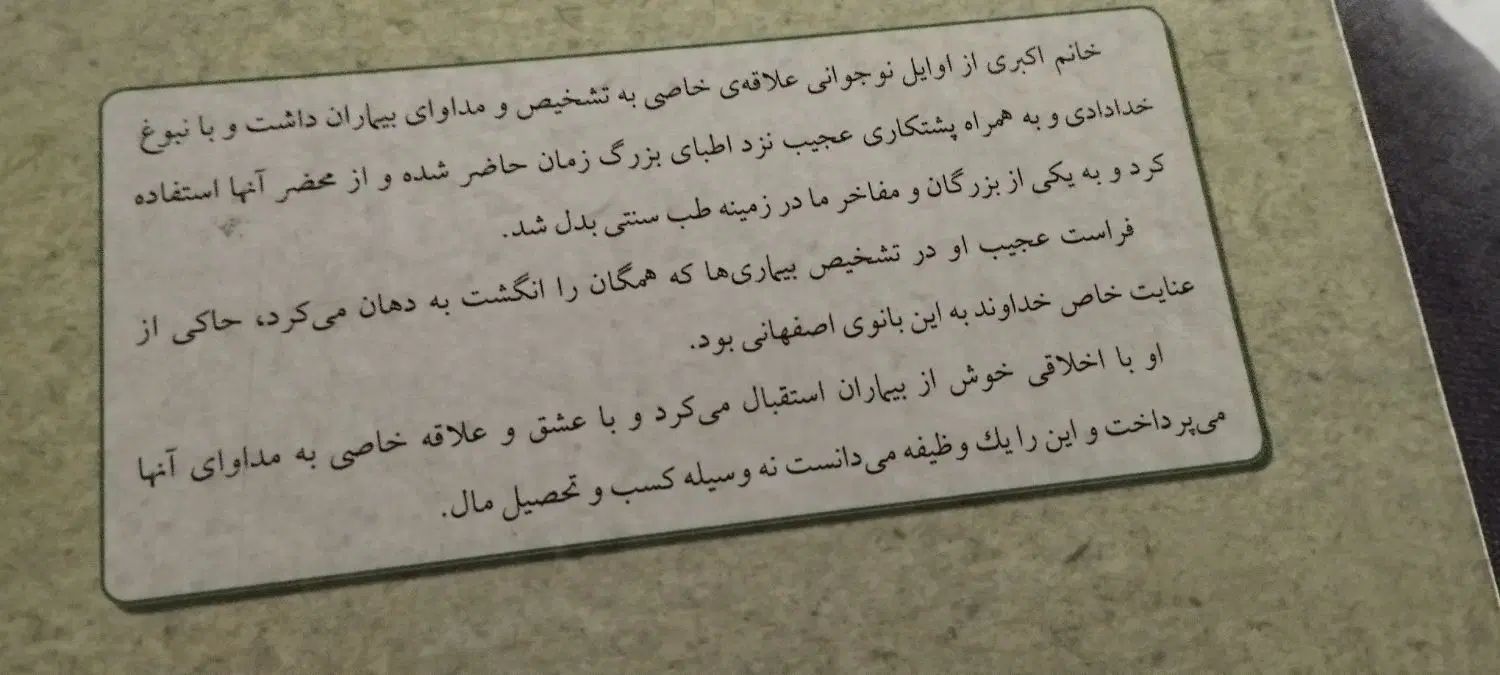 خانم اکبری از اوایل نوجوانی علاقه‌ی خاصی به تشخیص و مداوای بیماران داشت و با نبوغ
خدادادی و به همراه پشتکاری عجیب نزد اطبای بزرگ زمان حاضر شده و از محضر آنها استفاده
کرد و به یکی از بزرگان و مفاخر ما در زمینه طب سنتی بدل شد.
فراست عجیب او در تشخیص بیماری‌ها که همگان را انگشت به دهان می‌کرد، حاکی از
عنایت خاص خداوند به این بانوی اصفهانی بود.
او با اخلاقی خوش از بیماران استقبال می‌کرد و با عشق و علاقه خاصی به مداوای آنها
می‌پرداخت و این را یك وظیفه می‌دانست نه وسیله کسب و تحصیل مال.